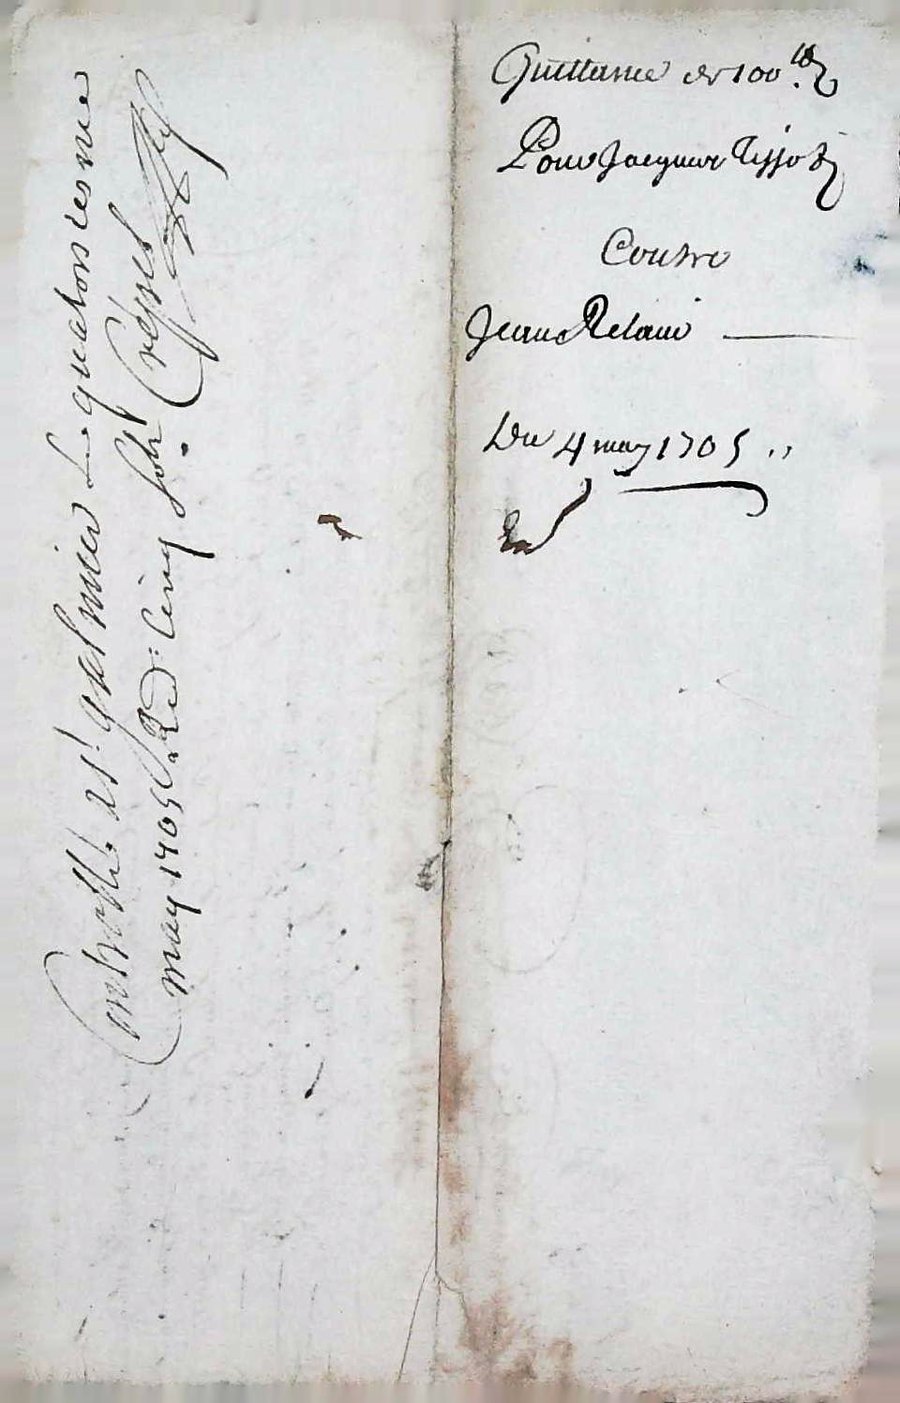 Quittance de 100 lt
Pour Jacques Tissot
Contre
Jean Relaue
Du 4 may 1705
Controllé a St galmier Le quatorsiesme
may 1705 Red: cinq sols Crespet